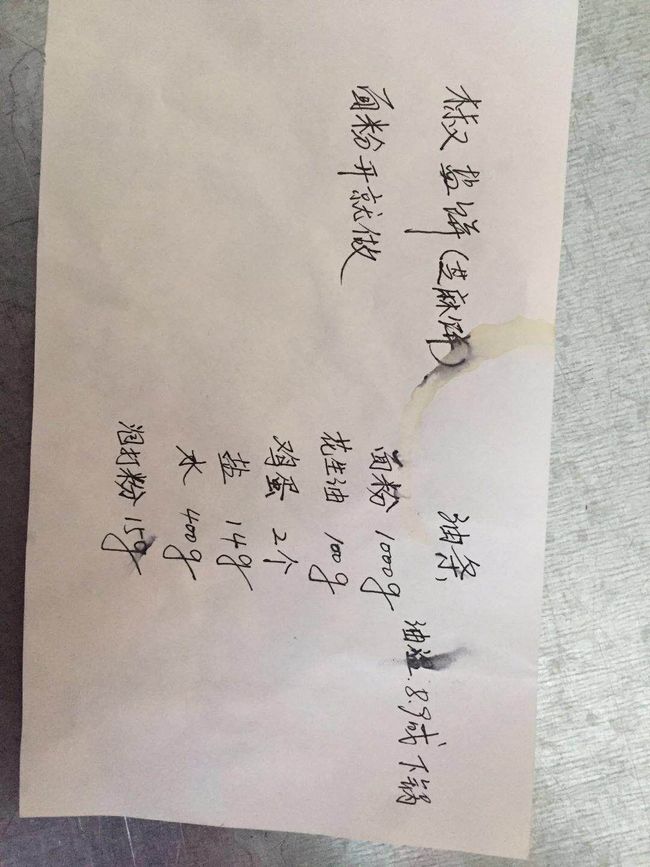 椒盐饼(芝麻饼)
面粉开就做
油条:
油温:8.9成下锅
面粉 1000g
花生油 100g
鸡蛋 2个
盐 14g
水 400g
泡打粉 15g